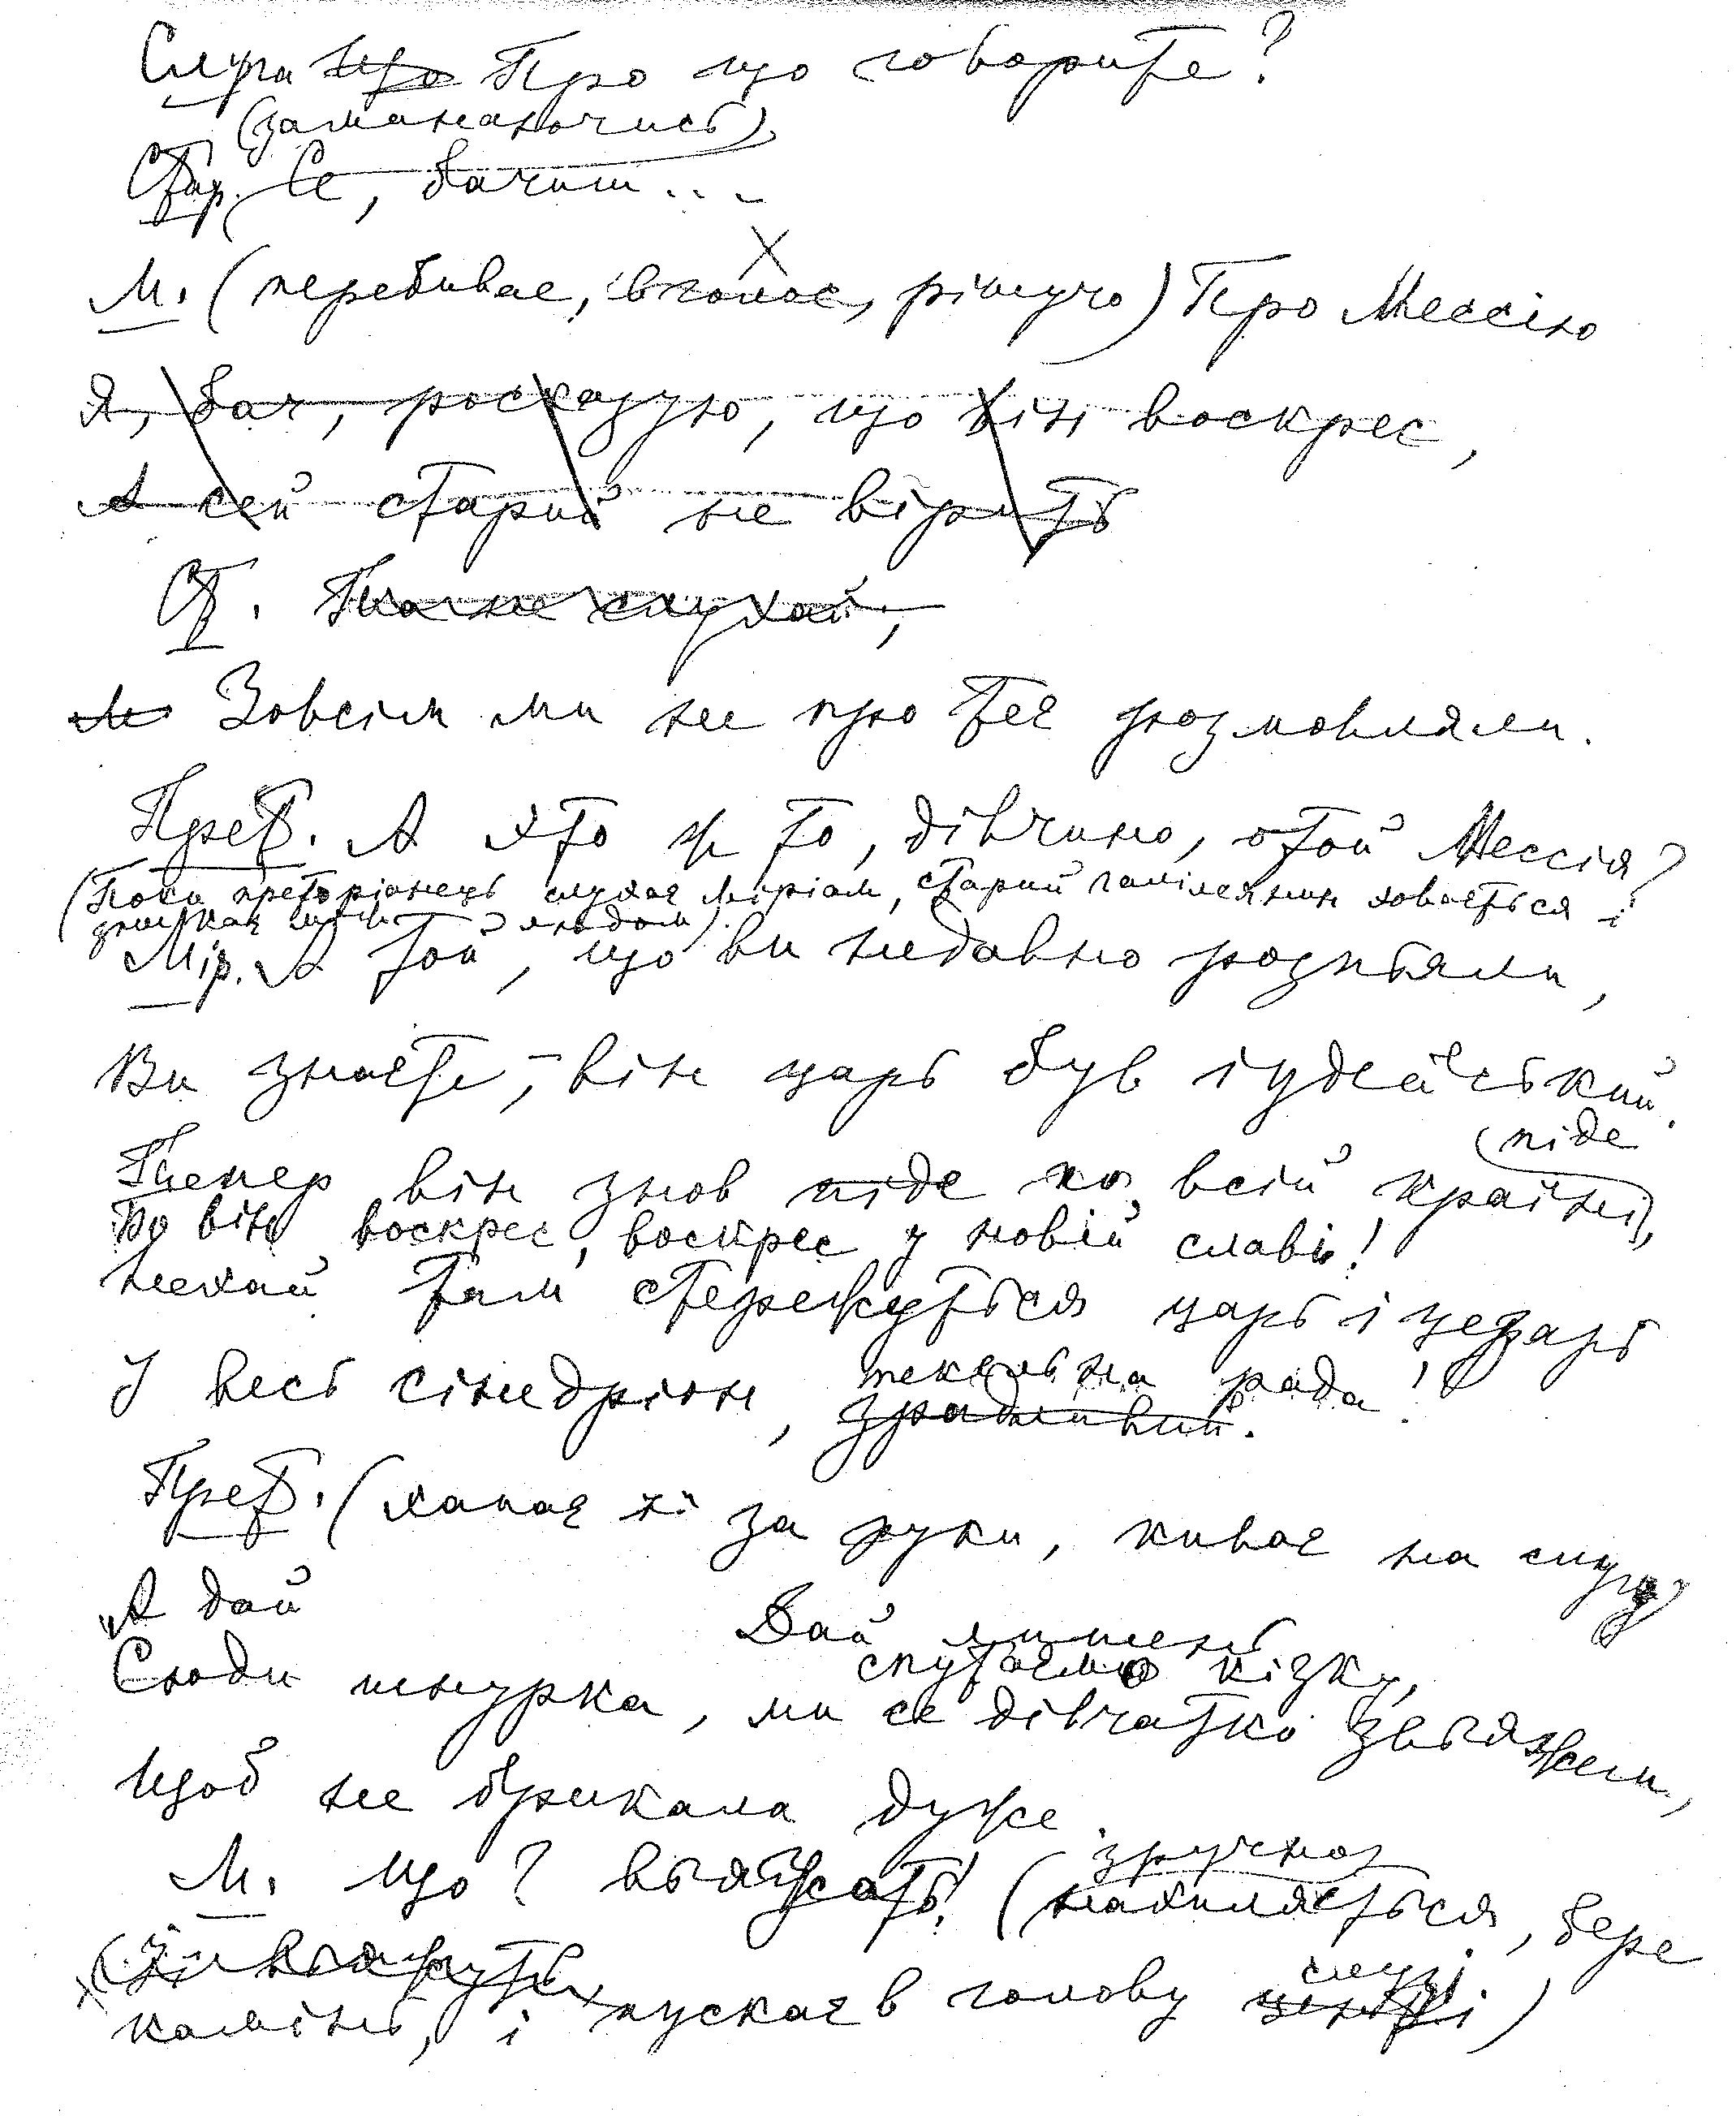 Слуга що Про що говорите?
(заминаючись)
Стар. Се, бачиш...
М. (перебивае, вголос, рішучо) Про Мессію
Я, бач, росказую, що він воскрес,
А сей старий не вірить
Ст. Та не слухай,
М Зовсім ми не про теє розмовляли.
Прет. А хто ж то, дівчино, отой Мессія?
(Поки преторіонець слухає Міріам, старий галілеянин ховається і
зникає між людом)
Мір. А той, що ви недавно розпьяли,
Ви знаєте, – він царь був іудейський.
піде
Тепер він знов піде по всій країні,
Бо він воскрес, воскрес у новій славі!
Нехай там стережуться царь і цезарь
І весь сінедріон,
пекельна рада!
зрадливий.
Прет. (хапає її за руки, киває на слугу)
А дай
Дай лишень
спутаємо кізку,
Сюди шнурка, ми се дівчатко звьяжем,
Щоб не брикала дуже.
М. Що? вьязать! (
зручно
нахиляється, бере
її вьяжуть
камінь, і пускає в голову
слузі
центурі)